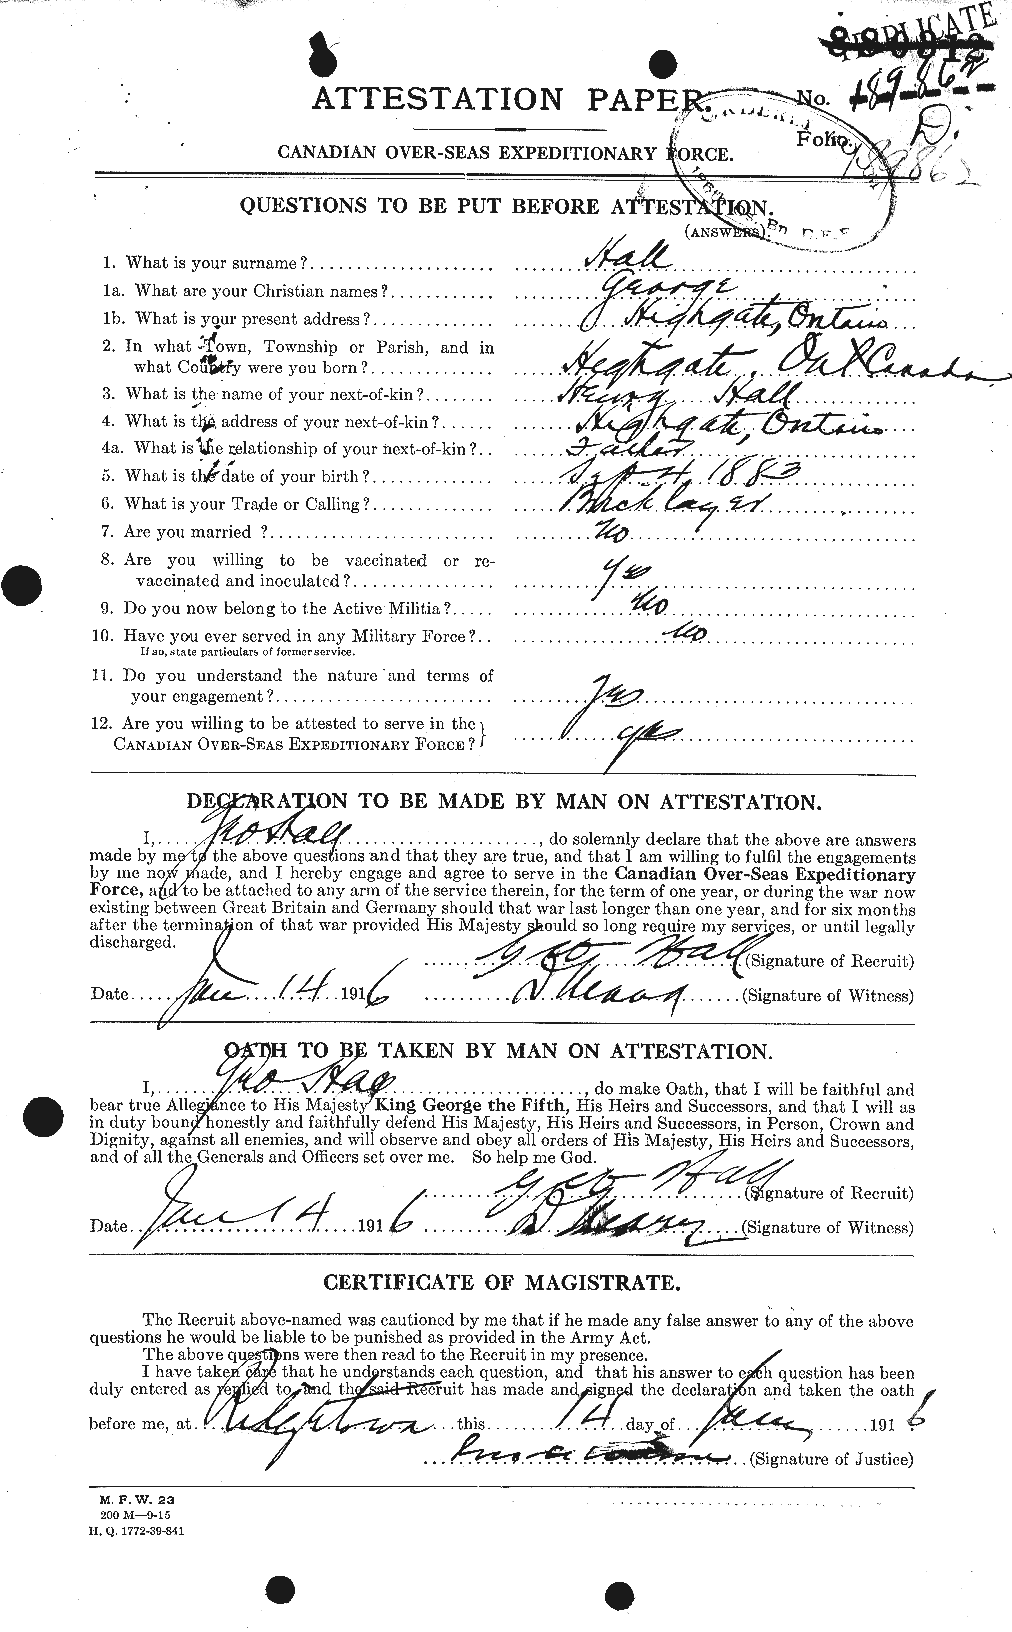 DUPLICATE
ATTESTATION PAPER. No. 189862
Folio. D.
189862
CANADIAN OVER-SEAS EXPEDITIONARY FORCE.
QUESTIONS TO BE PUT BEFORE ATTESTATION.
(ANSWERS).
1. What is your surname? Hall
1a. What are your Christian names? George
1b. What is your present address? Highgate, Ontario
2. In what Town, Township or Parish, and in
what Country were you born? Highgate, Ont Canada
3. What is the name of your next-of-kin? Henry Hall
4. What is the address of your next-of-kin? Highgate, Ontario
4a. What is the relationship of your next-of-kin? Father
5. What is the date of your birth? Sept 4 1883
6. What is your Trade or Calling? Bricklayer
7. Are you married? No
8. Are you willing to be vaccinated or re-
vaccinated and inoculated? Yes
9. Do you now belong to the Active Militia? No
10. Have you ever served in any Military Force? No
If so, state particulars of former service.
11. Do you understand the nature and terms of
your engagement? Yes
12. Are you willing to be attested to serve in the
CANADIAN OVER-SEAS EXPEDITIONARY FORCE? yes
DECLARATION TO BE MADE BY MAN ON ATTESTATION.
I, Geo Hall, do solemnly declare that the above are answers
made by me to the above questions and that they are true, and that I am willing to fulfil the engagements
by me now made, and I hereby engage and agree to serve in the Canadian Over-Seas Expeditionary
Force, and to be attached to any arm of the service therein, for the term of one year, or during the war now
existing between Great Britain and Germany should that war last longer than one year, and for six months
after the termination of that war provided His Majesty should so long require my services, or until legally
discharged.
Geo Hall (Signature of Recruit)
Date Jan 14 1916 (Signature of Witness)
OATH TO BE TAKEN BY MAN ON ATTESTATION.
I, Geo Hall, do make Oath, that I will be faithful and
bear true Allegiance to His Majesty King George the Fifth, His Heirs and Successors, and that I will as
in duty bound honestly and faithfully defend His Majesty, His Heirs and Successors, in Person, Crown and
Dignity, against all enemies, and will observe and obey all orders of His Majesty, His Heirs and Successors,
and of all the Generals and Officers set over me. So help me God.
Geo Hall (Signature of Recruit)
Date Jan 14 1916 (Signature of Witness)
CERTIFICATE OF MAGISTRATE.
The Recruit above-named was cautioned by me that if he made any false answer to any of the above
questions he would be liable to be punished as provided in the Army Act.
The above questions were then read to the Recruit in my presence.
I have taken care that he understands each question, and that his answer to each question has been
duly entered as replied to, and the said Recruit has made and signed the declaration and taken the oath
before me, at Ridgetown this 14 day of Jan 1916
(Signature of Justice)
M. F. W. 23
200 M—9-15
H. Q. 1772-39-841